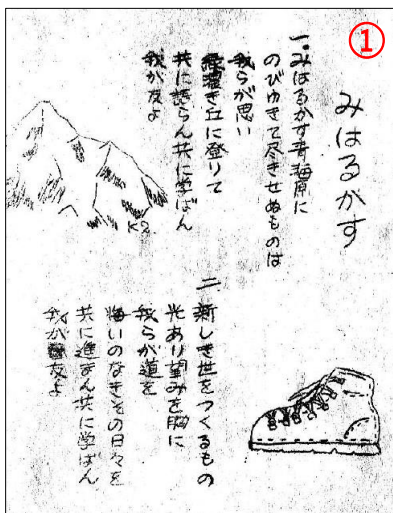 ①
みはるがす
一。みはるかす青海原に
のびゆきて尽きせぬものは
我らが思い
緑濃き丘に登りて
共に語らん共に学ばん
我が友よ
K2.
二 新しき世をつくるもの
光あり望みを胸に
我らが道を
悔いのなきその日々を
共に進まん共に学ばん
我が友よ